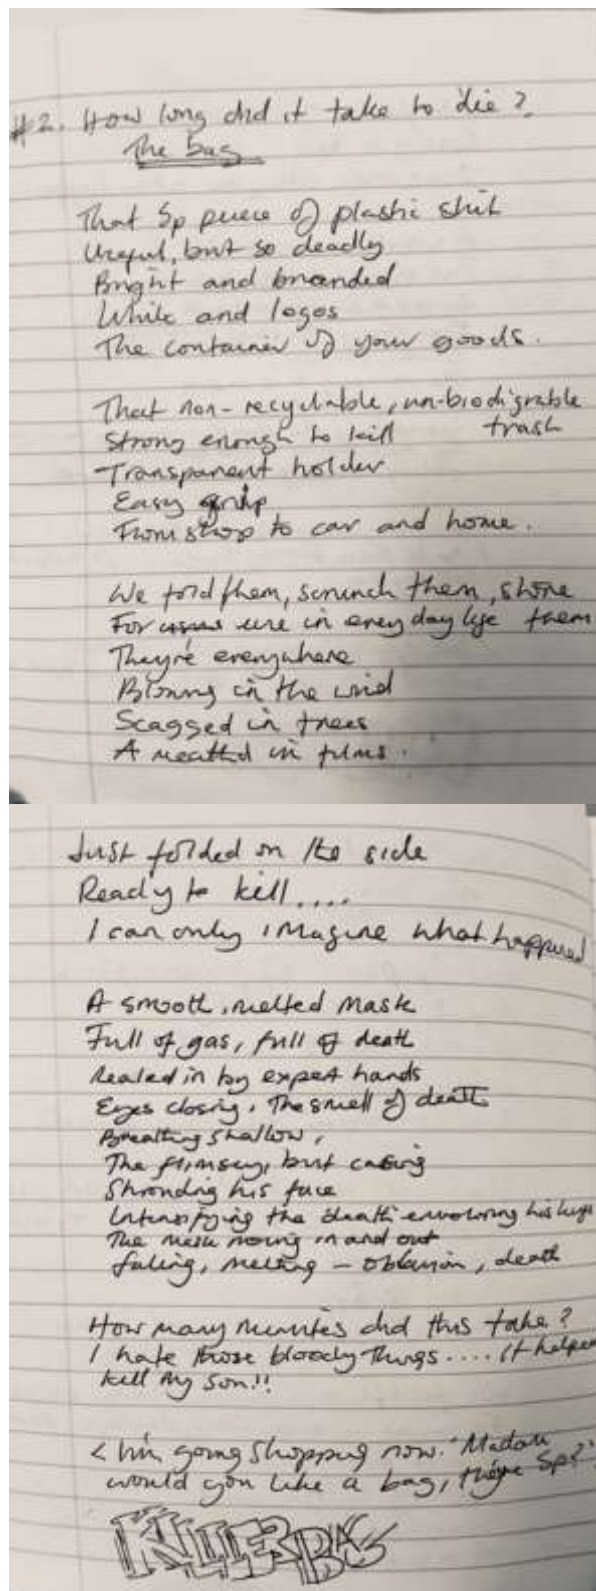 #2. How long did it take to die?
The bag
That 5p piece of plastic shit
Useful, but so deadly
Bright and branded
White and logos
The container of your goods.
That non-recyclable, un-biodigrable
Strong enough to kill trash
Transparent holder
Easy grip
From shop to car and home.
We fold them, scrunch them, store
For use in every day life them
They're everywhere
Blowing in the wind
Scagged in trees
A method in films.
Just folded on the side
Ready to kill....
I can only imagine what happened
A smooth, melted mask
Full of gas, full of death
Sealed in by expert hands
Eyes closing, The smell of death
Breathing shallow,
The flimsey, but casing
Shrouding his face
Intensifying the death envoloring his lungs
The mask moving in and out
falling, melting - oblivion, death
How many minutes did this take?
I hate those bloody things.... it helped
kill my son!!
< I'm going shopping now. "Madam
would you like a bag, they're 5p?"
KILLER BAG